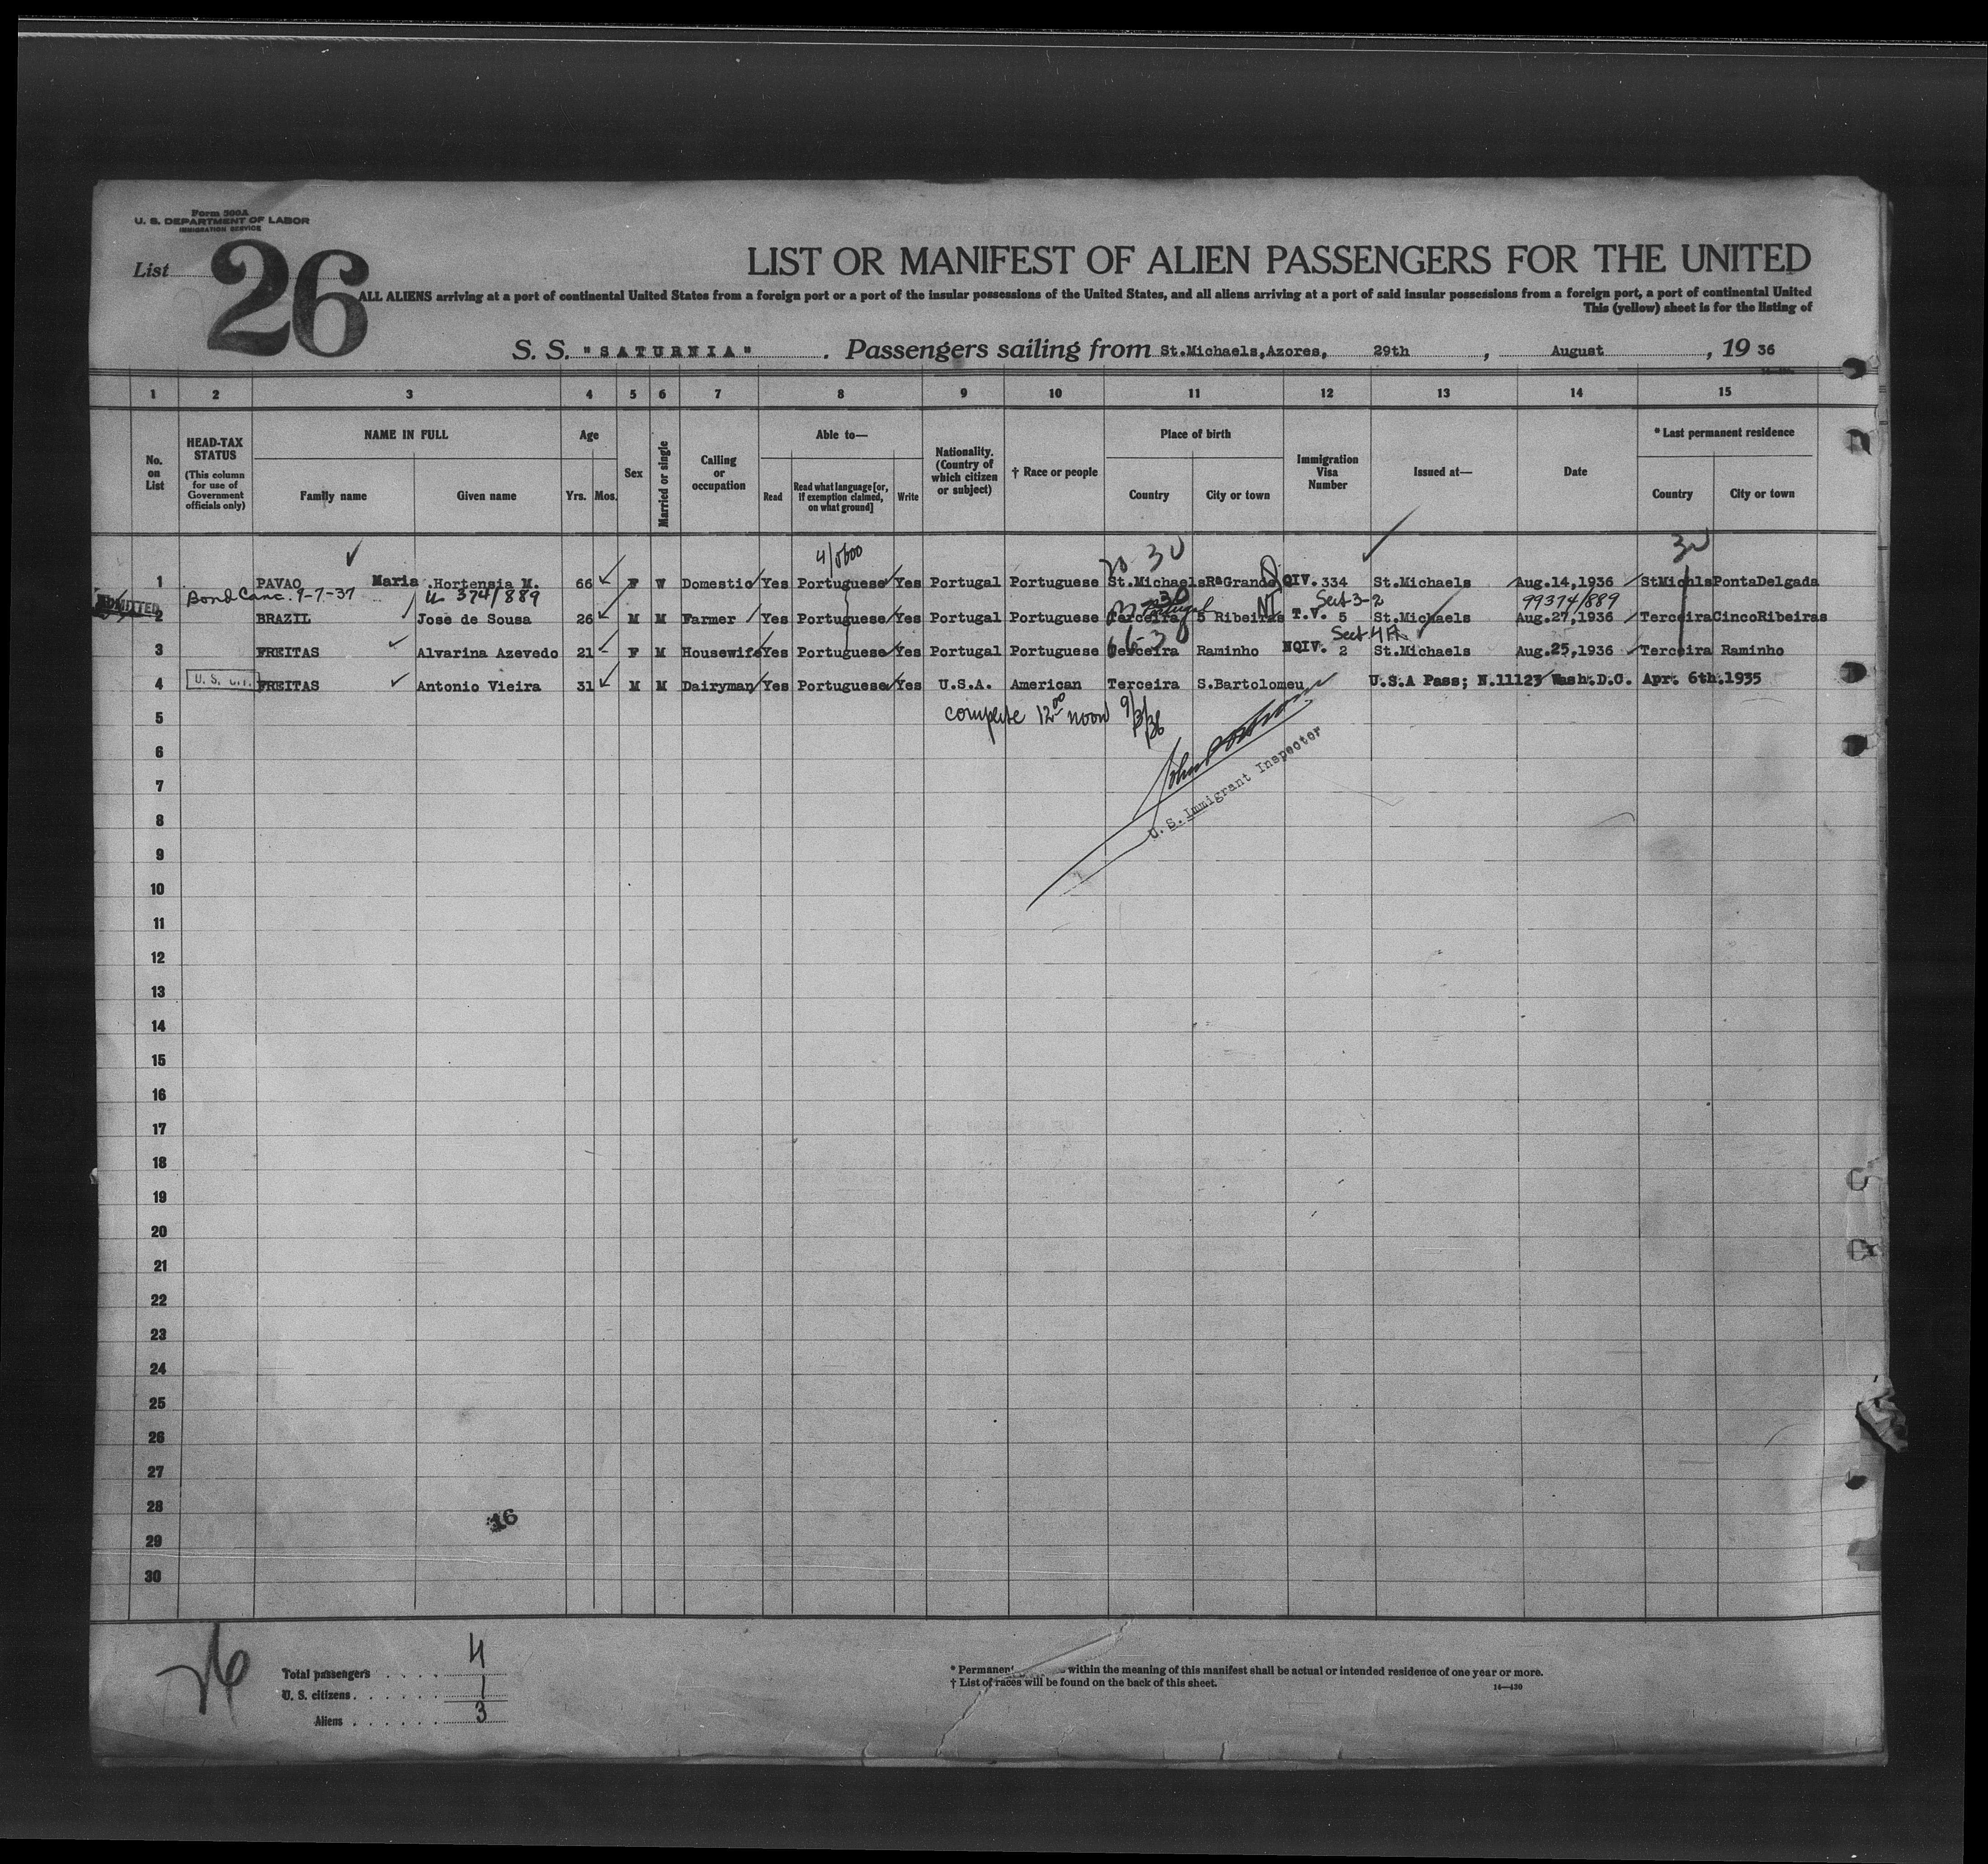 Form 500A
U. S. DEPARTMENT OF LABOR
IMMIGRATION SERVICE
List 26
LIST OR MANIFEST OF ALIEN PASSENGERS FOR THE UNITED
ALL ALIENS arriving at a port of continental United States from a foreign port or a port of the insular possessions of the United States, and all aliens arriving at a port of said insular possessions from a foreign port, a port of continental United
This (yellow) sheet is for the listing of
S. S. "SATURNIA" . Passengers sailing from St.Michaels,Azores, 29th , August , 19 36
1 2 3 4 5 6 7 8 9 10 11 12 13 14 15
No. on List
HEAD-TAX STATUS (This column for use of Government officials only)
NAME IN FULL
Family name Given name
Age
Yrs. Mos.
Sex
Married or single
Calling or occupation
Able to—
Read Read what language [or, if exemption claimed, on what ground] Write
Nationality. (Country of which citizen or subject)
† Race or people
Place of birth
Country City or town
Immigration Visa Number
Issued at—
Date
* Last permanent residence
Country City or town
30 30
1 PAVAO Maria .Hortensia M. 66 F W Domestic Yes Portuguese Yes Portugal Portuguese St.Michaels RªGrande QIV. 334 St.Michaels Aug.14,1936 StMichls PontaDelgada
Bond Canc. 9-7-37 374/889 Sect 3-2 99374/889
ADMITTED
2 BRAZIL Jose de Sousa 26 M M Farmer Yes Portuguese Yes Portugal Portuguese Terceira 5 Ribeiras T.V. 5 St.Michaels Aug.27,1936 Terceira CincoRibeiras
Portugal
Sect 4 A
3 FREITAS Alvarina Azevedo 21 F M Housewife Yes Portuguese Yes Portugal Portuguese Terceira Raminho NQIV. 2 St.Michaels Aug.25,1936 Terceira Raminho
4 U. S. CIT. FREITAS Antonio Vieira 31 M M Dairyman Yes Portuguese Yes U.S.A. American Terceira S.Bartolomeu U.S.A Pass; N.11123 Wash.D.C. Apr. 6th.1935
5 complete 12 00 noon 9/3/36
6
7
U. S. Immigrant Inspector
8
9
10
11
12
13
14
15
16
17
18
19
20
21
22
23
24
25
26
27
28
16
29
30
26
Total passengers . . . . . 4
U. S. citizens . . . . . . 1
Aliens . . . . . . 3
* Permanent within the meaning of this manifest shall be actual or intended residence of one year or more.
† List of races will be found on the back of this sheet.
14—430